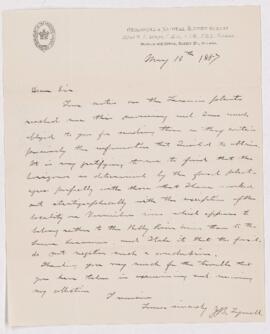 GEOLOGICAL & NATURAL HISTORY SURVEY
May 16th 1887
Dear Sir
Your notes on the Laramie plants
reached me this morning and I am much
obliged to you for sending them as they contain
precisely the information that I wished to obtain.
It is very gratifying to me to find that the
horizons as determined by the fossil plants
agree perfectly with those that I have worked
out stratigraphically with the exception of the
locality on Vermilion river which appears to
belong rather to the Belly River series than to the
Laramie and I take it that the fossils
do not negative such a conclusion.
Thanking you very much for the trouble that
you have taken in examining and naming
my collection
I remain
Yours sincerely J.B. Tyrrell